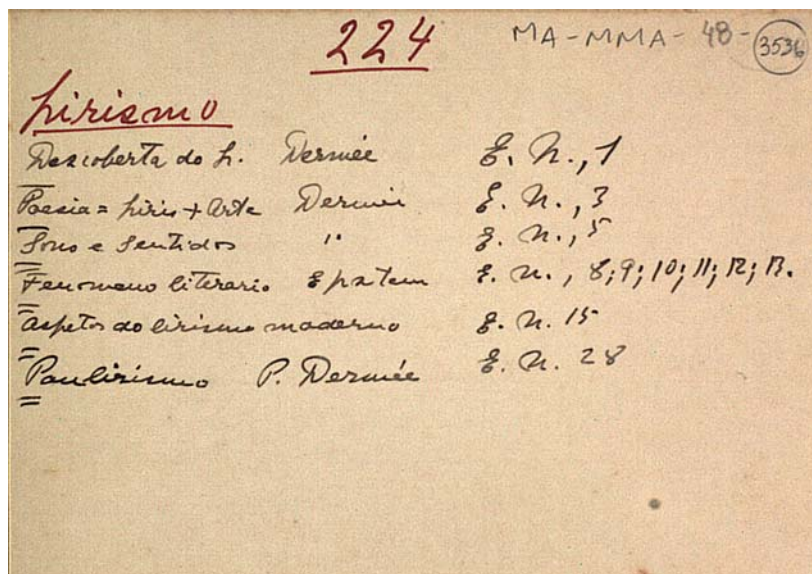 224 MA-MMA-48-3536
Lirismo
Descoberta do L. Dermée E. N., 1
Poesia = Liris + Arte Dermée E. N., 3
Sons e Sentidos " E. N., 5
Fenomeno literario Epstein E. N., 8; 9; 10; 11; 12; 13.
Aspetos do lirismo moderno E. N. 15
Panlirismo P. Dermée E. N. 28